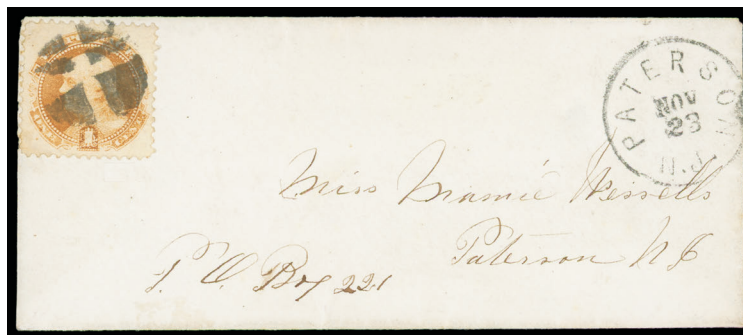 PATERSON
NOV
23
N.J.
1
Miss Mamie Wessells
Paterson N J
P. O. Box 221